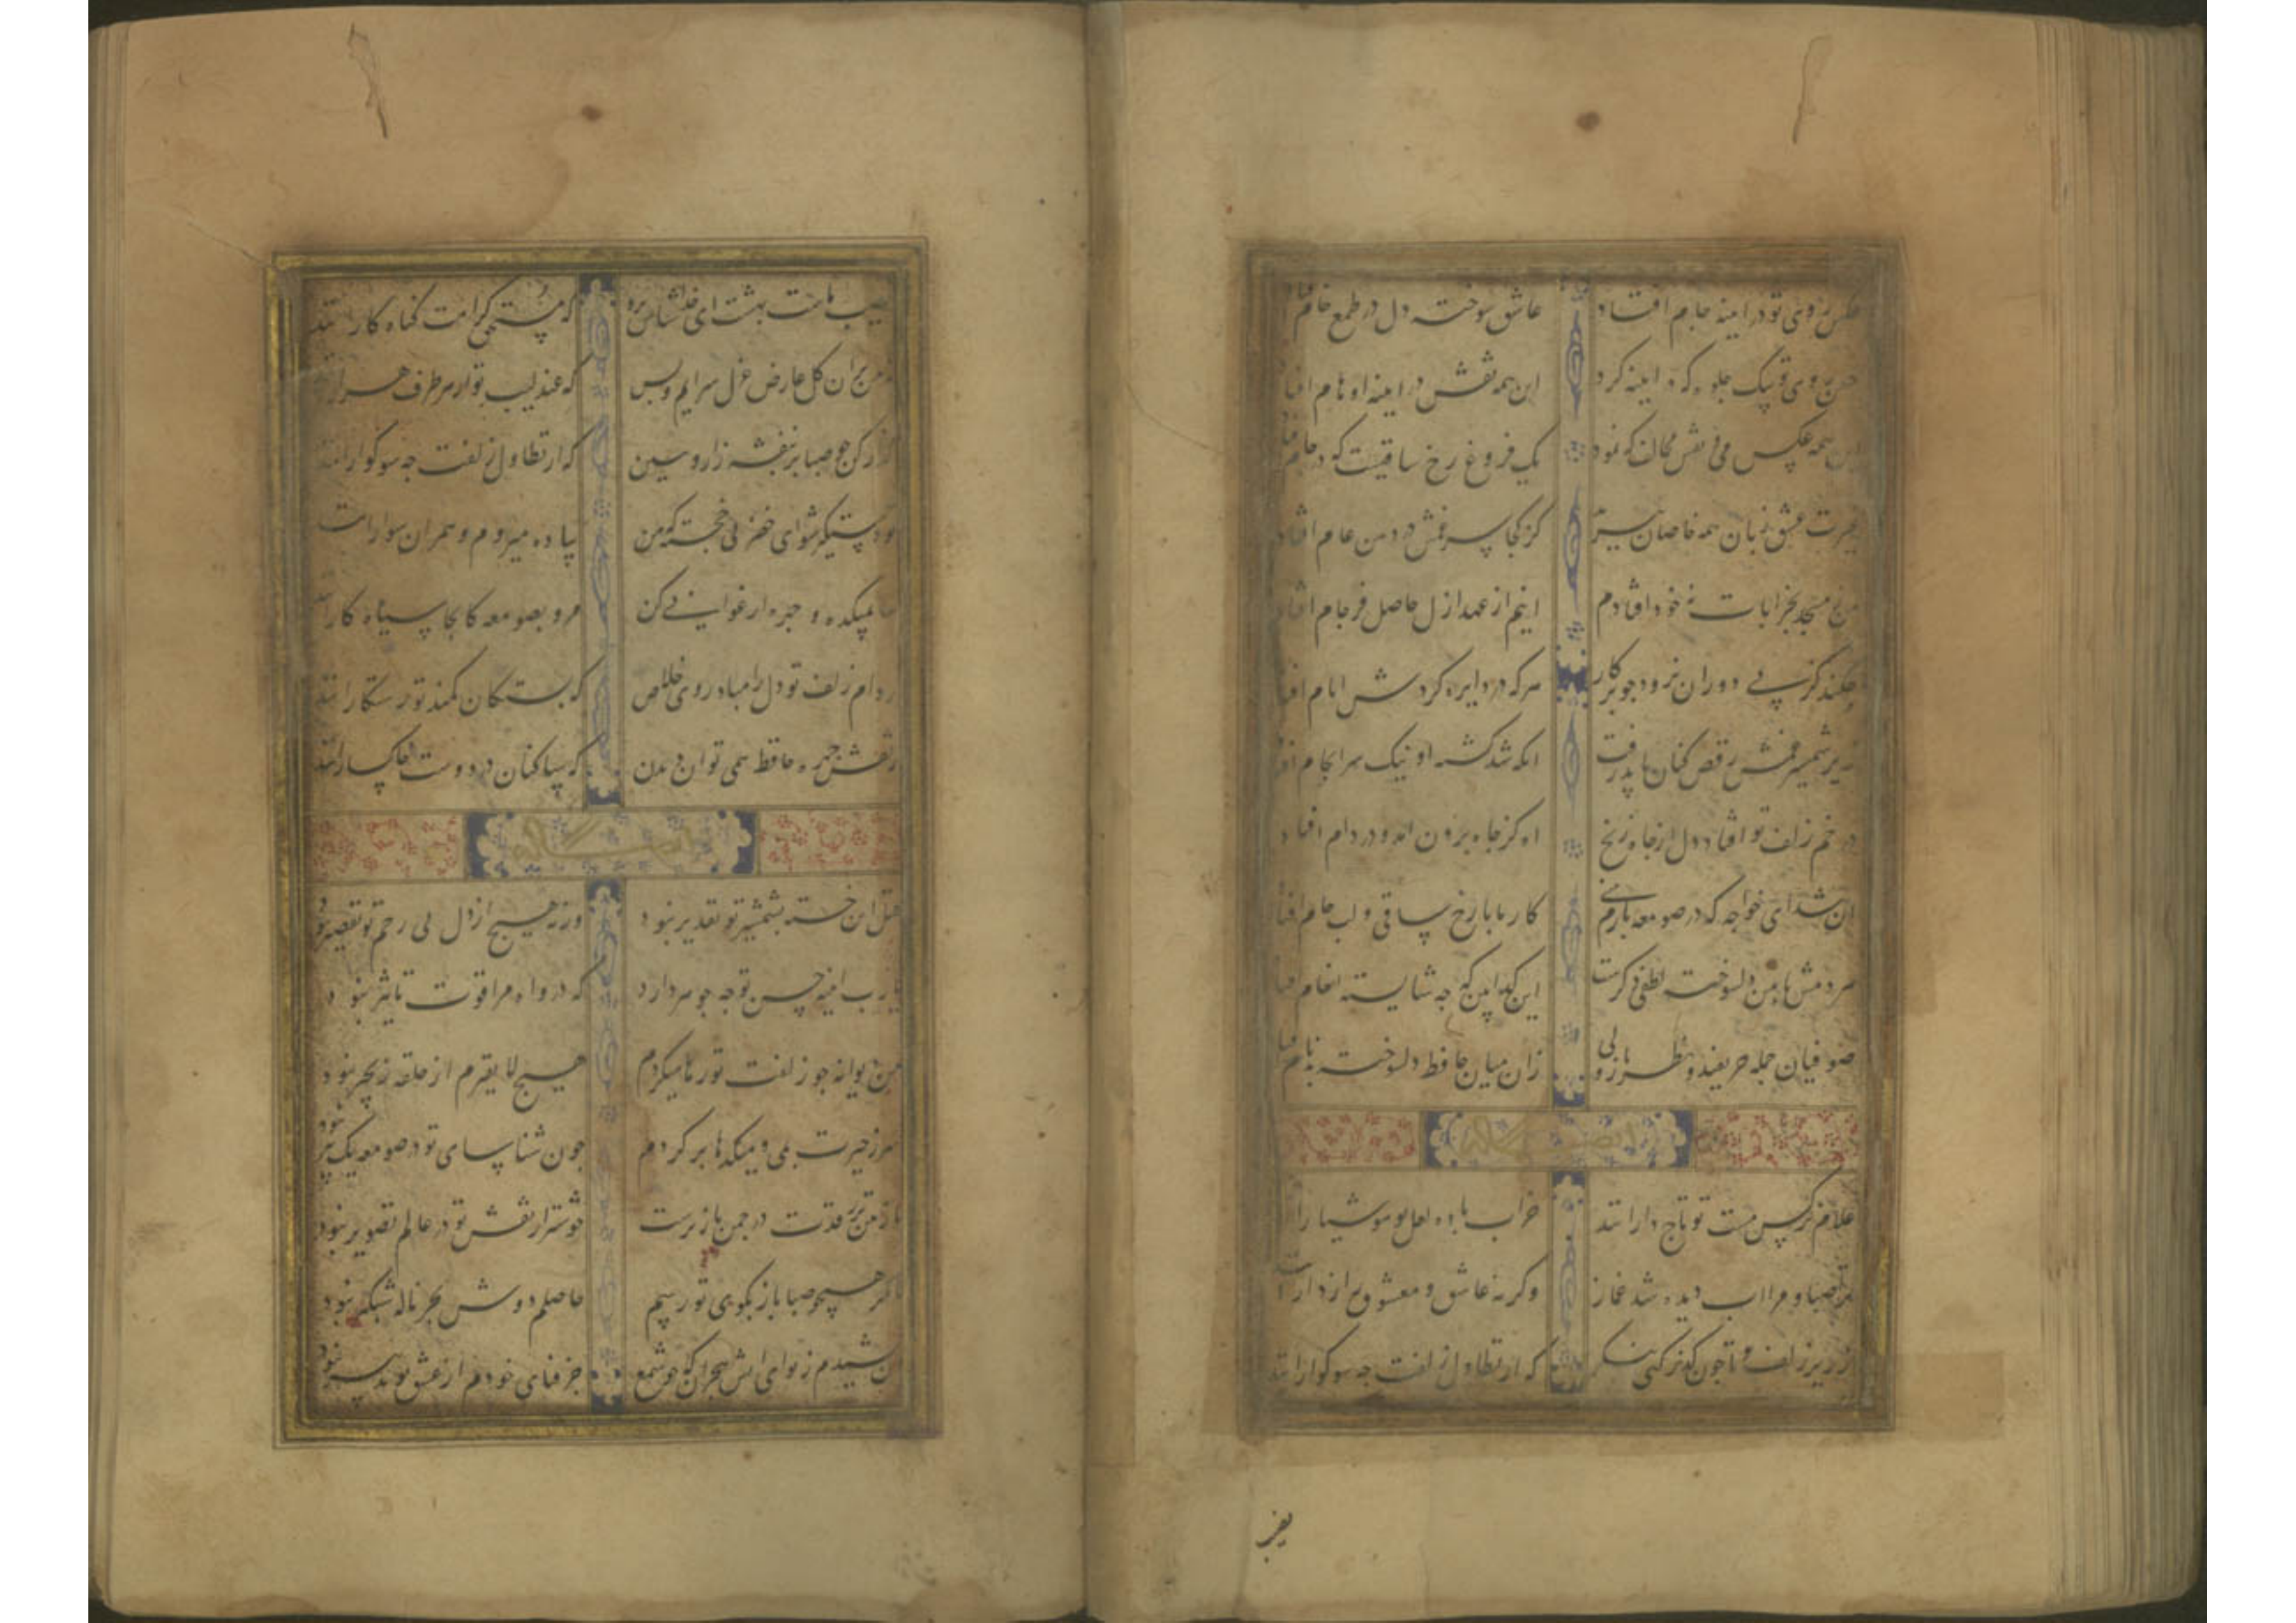 عکس روی تو در اینه جام افتاد عاشق سوخته دل در طمع خام افتاد
حسن روی تو بیک جلوه که در اینه کرد این همه نقش در اینه اوهام افتاد
این همه عکس می و نقش مخالف که نمود یک فروغ رخ ساقیست که در جام افتاد
غیرت عشق زبان همه خاصان ببرید کز کجا سر غمش در دهن عام افتاد
من ز مسجد بخرابات نه خود افتادم اینم از عهد ازل حاصل فرجام افتاد
چکند کز پی دوران نرود جو پرکار هرکه در دایره گردش ایام افتاد
زیر شمشیر غمش رقص کنان باید رفت انکه شد کشته او نیک سرانجام افتاد
در خم زلف تو افتاد دل از جاه زنخ اه کز جاه برون امد و در دام افتاد
ان شد ای خواجه که در صومعه بازم بینی کار ما با رخ ساقی و لب جام افتاد
هردمش با من دلسوخته لطفی دکرست این کدا بین که جه شایسته انعام افتاد
صوفیان جمله حریفند و نظرباز ولی زان میان حافظ دلسوخته بدنام افتاد
ایضا له
غلام نرکس مست تو تاج دارانند خراب باده لعل تو هوشیارانند
ترا صبا و مرا اب دیده شد غماز وکرنه عاشق و معشوق رازدارانند
ز زیر زلف دوتا جون کذر کنی بنکر که از تطاول زلفت جه سوکوارانند
نصیب
نصیب ماست بهشت ای خداشناس برو که مستحق کرامت کناه کارانند
نه من بران کل عارض غزل سرایم و بس که عندلیب تو از هر طرف هزارانند
کذر کن جو صبا بر بنفشه زار و ببین که از تطاول زلفت جه سوکوارانند
تو دستکیر شو ای خضر پی خجسته که من پیاده میروم و همرهان سوارانند
بیا بمیکده و جهره ارغوانی کن مرو بصومعه کانجا سیاه کارانند
ز دام زلف تو دل را مباد روی خلاص که بستکان کمند تو رستکارانند
ز نقش جهره حافظ همی توان دیدن که ساکنان در دوست خاکسارانند
ایضا له
قتل این خسته بشمشیر تو تقدیر نبود ورنه هیچ از دل بی رحم تو تقصیر نبود
یا رب اینه حسن تو جه جوهر دارد که درو اه مرا قوت تاثیر نبود
من دیوانه جو زلفت تو رها میکردم هیچ لایقترم از حلقه زنجیر نبود
سر ز حیرت بدر میکدها بر کردم جون شناسای تو در صومعه یک پیر نبود
نازنین تر ز قدت در جمن ناز نرست خوشتر از نقش تو در عالم تصویر نبود
تا مکر همچو صبا باز بکوی تو رسم حاصلم دوش بجز ناله شبکیر نبود
ان کشیدم ز تو ای اتش هجران که جو شمع جز فنای خودم از عشق تو تدبیر نبود